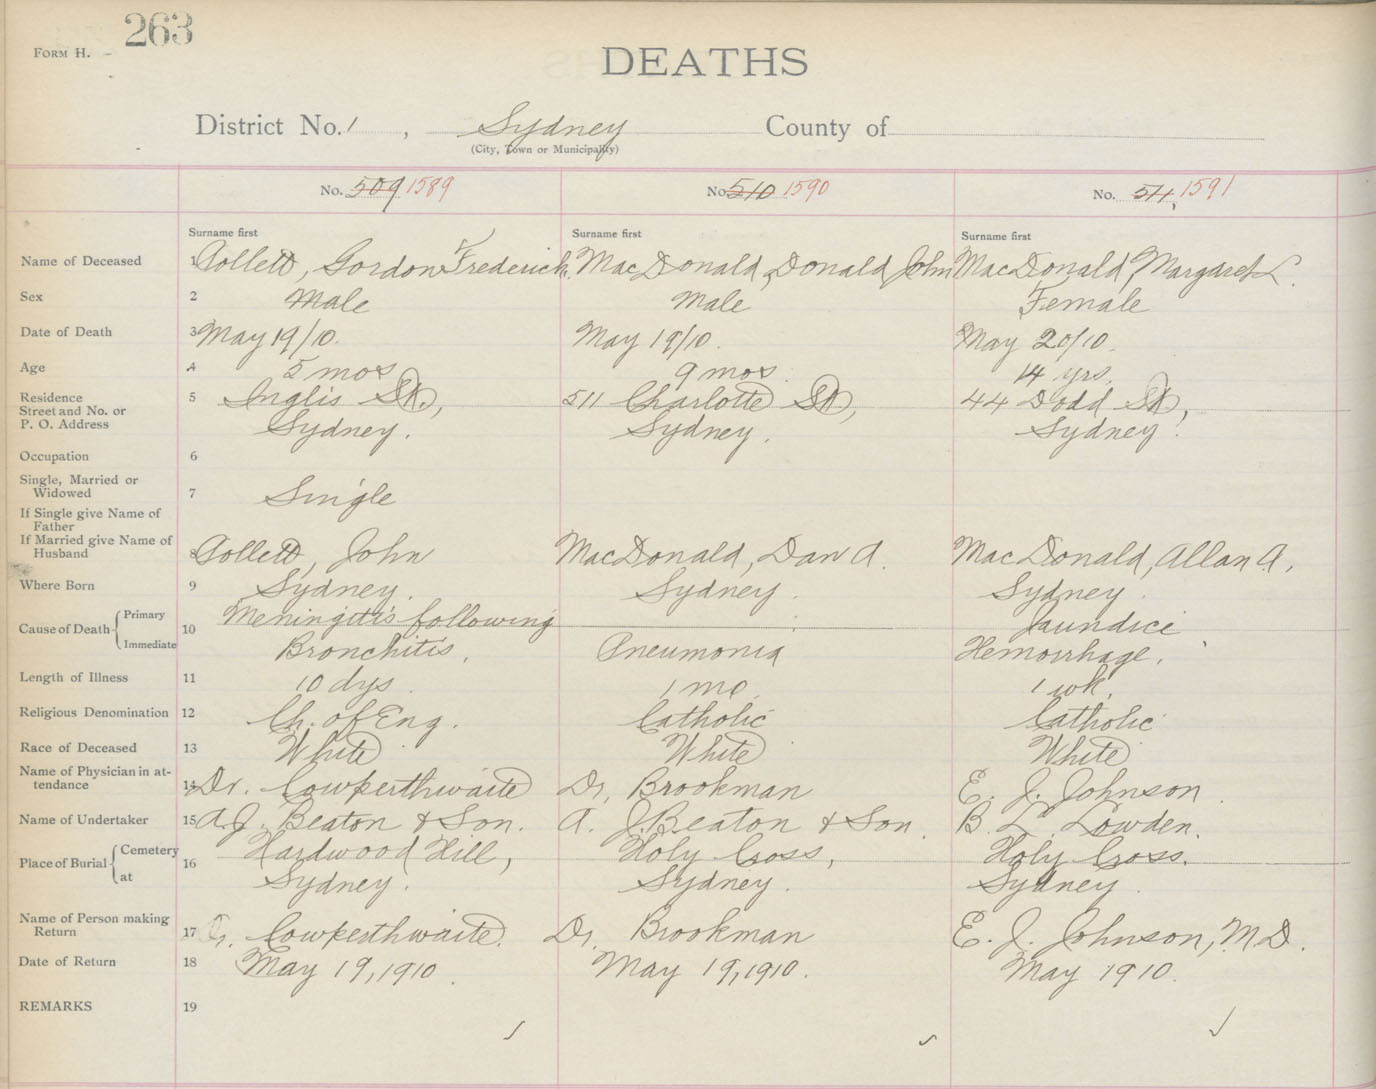 263
FORM H.
DEATHS
District No. 1, Sydney County of
(City, Town or Municipality)
No. 509 1589 No. 510 1590 No. 511, 1591
Surname first Surname first Surname first
Name of Deceased 1 Collett, Gordon Frederick. MacDonald, Donald John MacDonald, Margaret L.
Sex 2 Male Male Female
Date of Death 3 May 19/10. May 19/10. May 20/10.
Age 4 5 mos 9 mos. 14 yrs.
Residence 5 Inglis St., 511 Charlotte St, 44 Dodd St,
Street and No. or
P. O. Address Sydney. Sydney. Sydney.
Occupation 6
Single, Married or
Widowed 7 Single
If Single give Name of
Father
If Married give Name of
Husband 8 Collett, John MacDonald, Dan A. MacDonald, Allan A.
Where Born 9 Sydney. Sydney. Sydney.
Cause of Death Primary 10 Meningitis following Jaundice
Immediate Bronchitis. Pneumonia Hemorrhage.
Length of Illness 11 10 dys. 1 mo. 1 wk.
Religious Denomination 12 Ch. of Eng. Catholic Catholic
Race of Deceased 13 White White White
Name of Physician in at-
tendance 14 Dr. Cowperthwaite Dr. Brookman E. J. Johnson.
Name of Undertaker 15 A. J. Beaton & Son. A. J. Beaton & Son. B. L. Lowden.
Place of Burial Cemetery 16 Hardwood Hill, Holy Cross, Holy Cross.
at Sydney. Sydney. Sydney.
Name of Person making
Return 17 Dr. Cowperthwaite. Dr. Brookman E. J. Johnson, M.D.
Date of Return 18 May 19, 1910. May 19, 1910. May 1910.
REMARKS 19